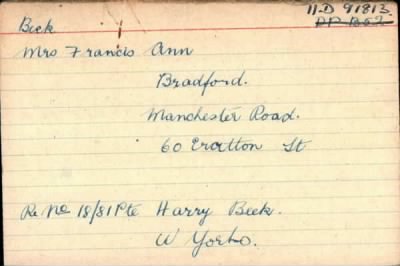 11.D 91813
PP B02
Beek
Mrs Francis Ann
Bradford.
Manchester Road.
60 St
Re No 18/81 Pte Harry Beek.
W Yorks.